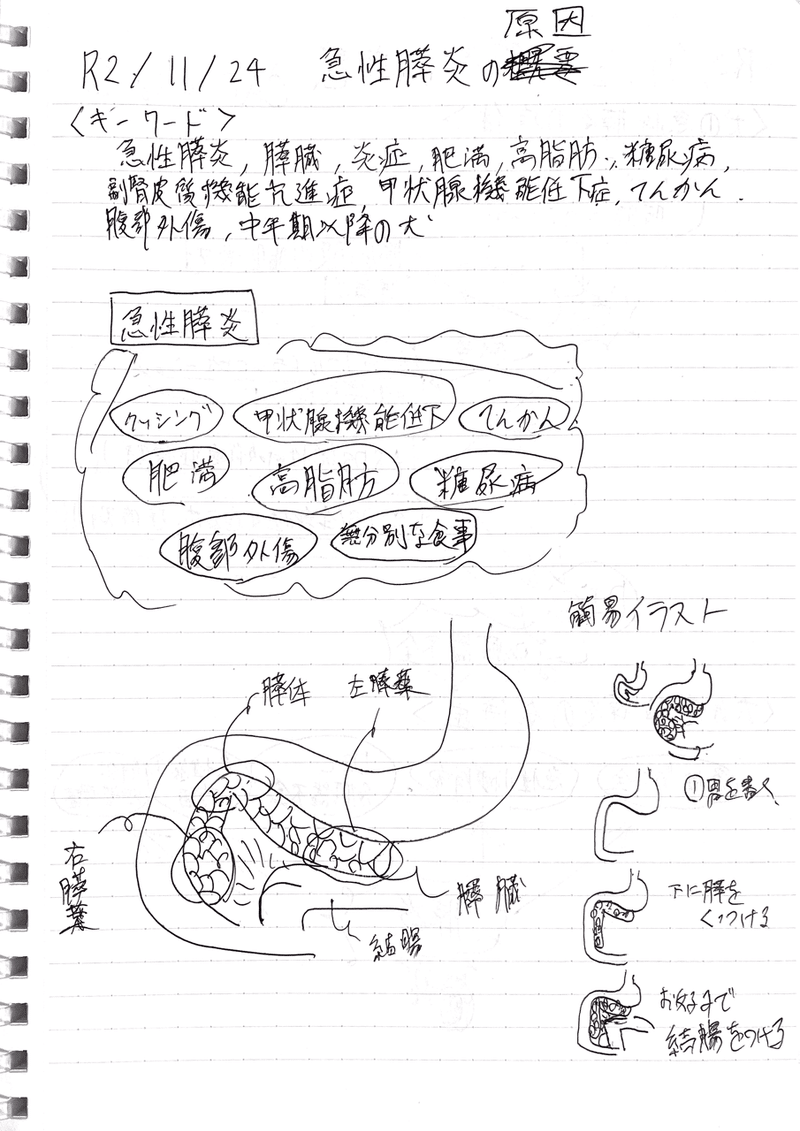 原因
R2/11/24 急性膵炎の
〈キーワード〉
急性膵炎,膵臓,炎症,肥満,高脂肪,糖尿病,
副腎皮質機能亢進症,甲状腺機能低下症,てんかん.
腹部外傷,中年期以降の犬
急性膵炎
クッシング 甲状腺機能低下 てんかん
肥満 高脂肪 糖尿病
腹部外傷 無分別な食事
簡易イラスト
膵体 左膵葉
①胃を書く
右膵葉
下に膵を
くっつける
膵臓
結腸
お好みで
結腸をつける